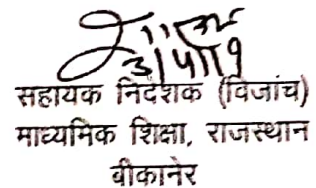 3/4/19
सहायक निदेशक (विजांच)
माध्यमिक शिक्षा, राजस्थान
बीकानेर